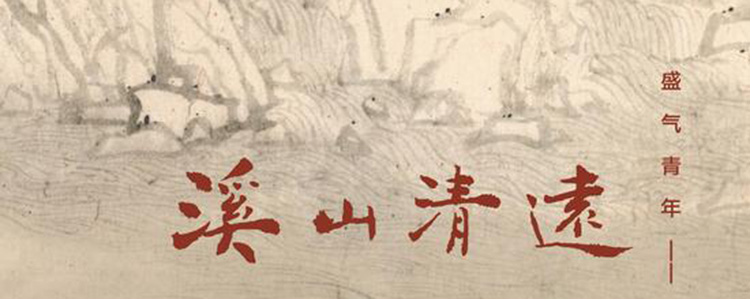 溪山清遠
盛气青年——